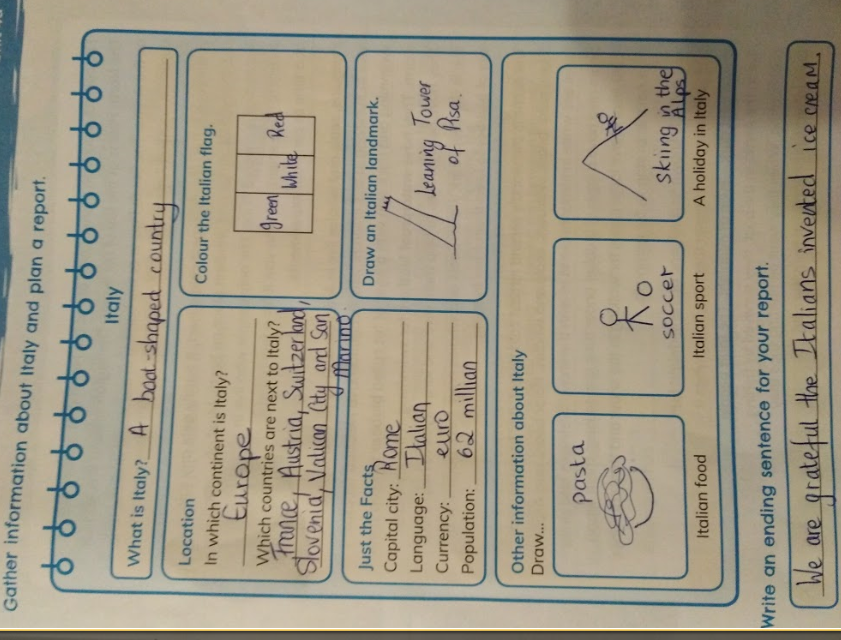 Gather information about Italy and plan a report.
Italy
What is Italy? A boot-shaped country
Location
In which continent is Italy?
Europe
Which countries are next to Italy?
France, Austria, Switzerland,
Slovenia, Vatican City and San
Marino
Colour the Italian flag.
green White Red
Just the Facts
Capital city: Rome
Language: Italian
Currency: euro
Population: 62 million
Draw an Italian landmark.
Leaning Tower
of Pisa.
Other information about Italy
Draw...
pasta
Italian food
soccer
Italian sport
skiing in the
Alps
A holiday in Italy
Write an ending sentence for your report.
We are grateful the Italians invented ice cream.